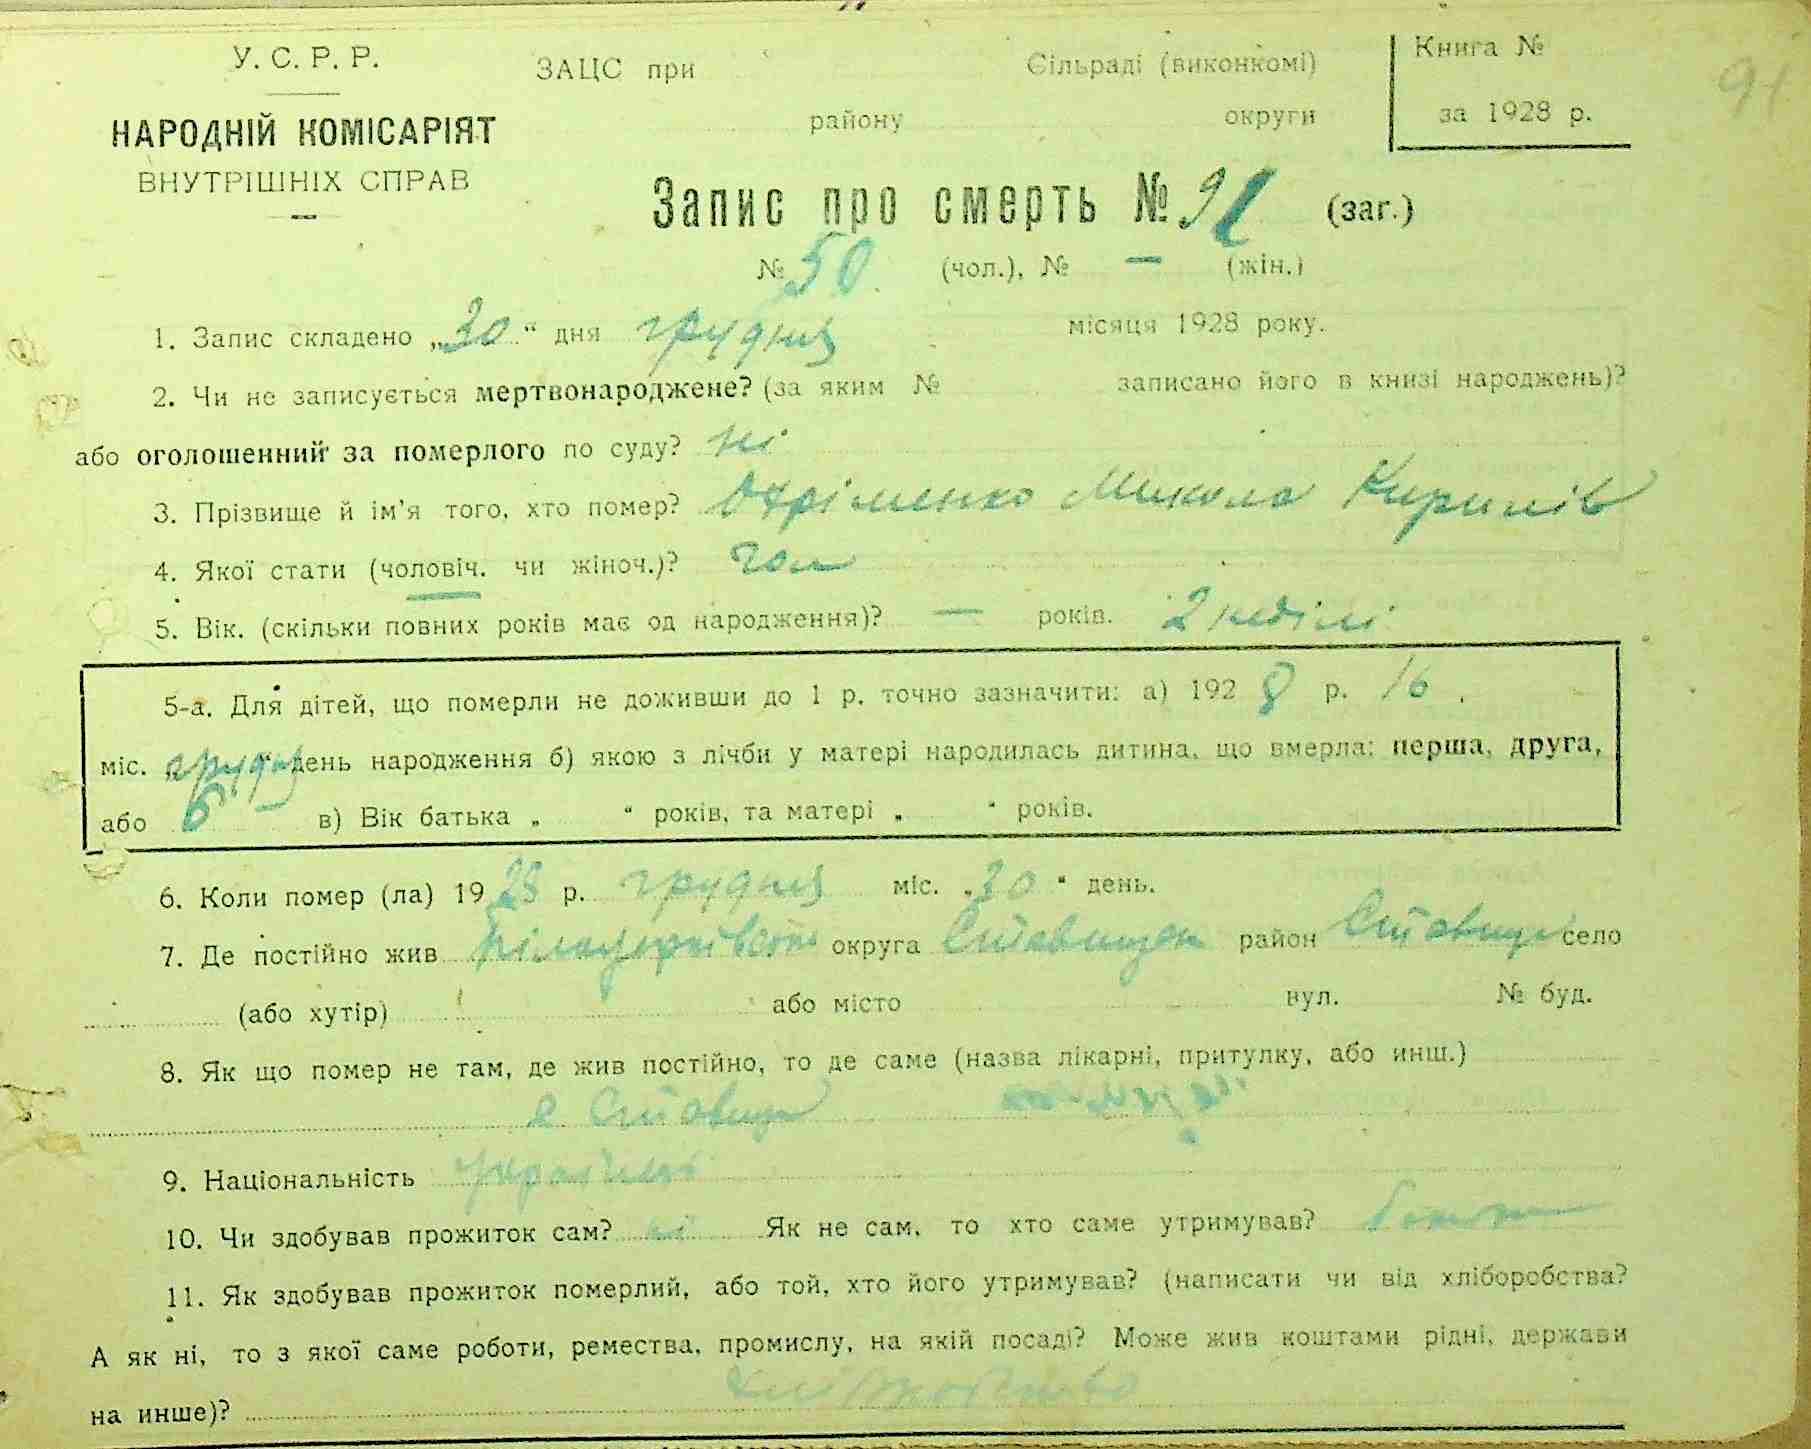 У. С. Р. Р.
НАРОДНІЙ КОМІСАРІЯТ
ВНУТРІШНІХ СПРАВ
ЗАЦС при Сільраді (виконкомі)
району округи
Книга №
за 1928 р.
91
Запис про смерть № 91 (заг.)
№ 50 (чол.), № — (жін.)
1. Запис складено „30“ дня грудня місяця 1928 року.
2. Чи не записується мертвонароджене? (за яким № записано його в книзі народжень)?
або оголошенний за померлого по суду? ні
3. Прізвище й ім'я того, хто помер? Охріменко Микола Кирилів
4. Якої стати (чоловіч. чи жіноч.)? чол
5. Вік. (скільки повних років має од народження)? — років. 2 неділі
5-а. Для дітей, що померли не доживши до 1 р. точно зазначити: а) 1928 р. 16
міс. грудня день народження б) якою з лічби у матері народилась дитина, що вмерла: перша, друга,
або 6 в) Вік батька „ “ років, та матері „ “ років.
6. Коли помер (ла) 1928 р. грудня міс. „30“ день.
7. Де постійно жив Білоцерківська округа Ставищан район Ставище село
(або хутір) або місто вул. № буд.
8. Як що помер не там, де жив постійно, то де саме (назва лікарні, притулку, або инш.)
Ставище
9. Національність
10. Чи здобував прожиток сам? ні Як не сам, то хто саме утримував?
11. Як здобував прожиток померлий, або той, хто його утримував? (написати чи від хліборобства?
А як ні, то з якої саме роботи, ремества, промислу, на якій посаді? Може жив коштами рідні, держави
на инше)? хліборобство